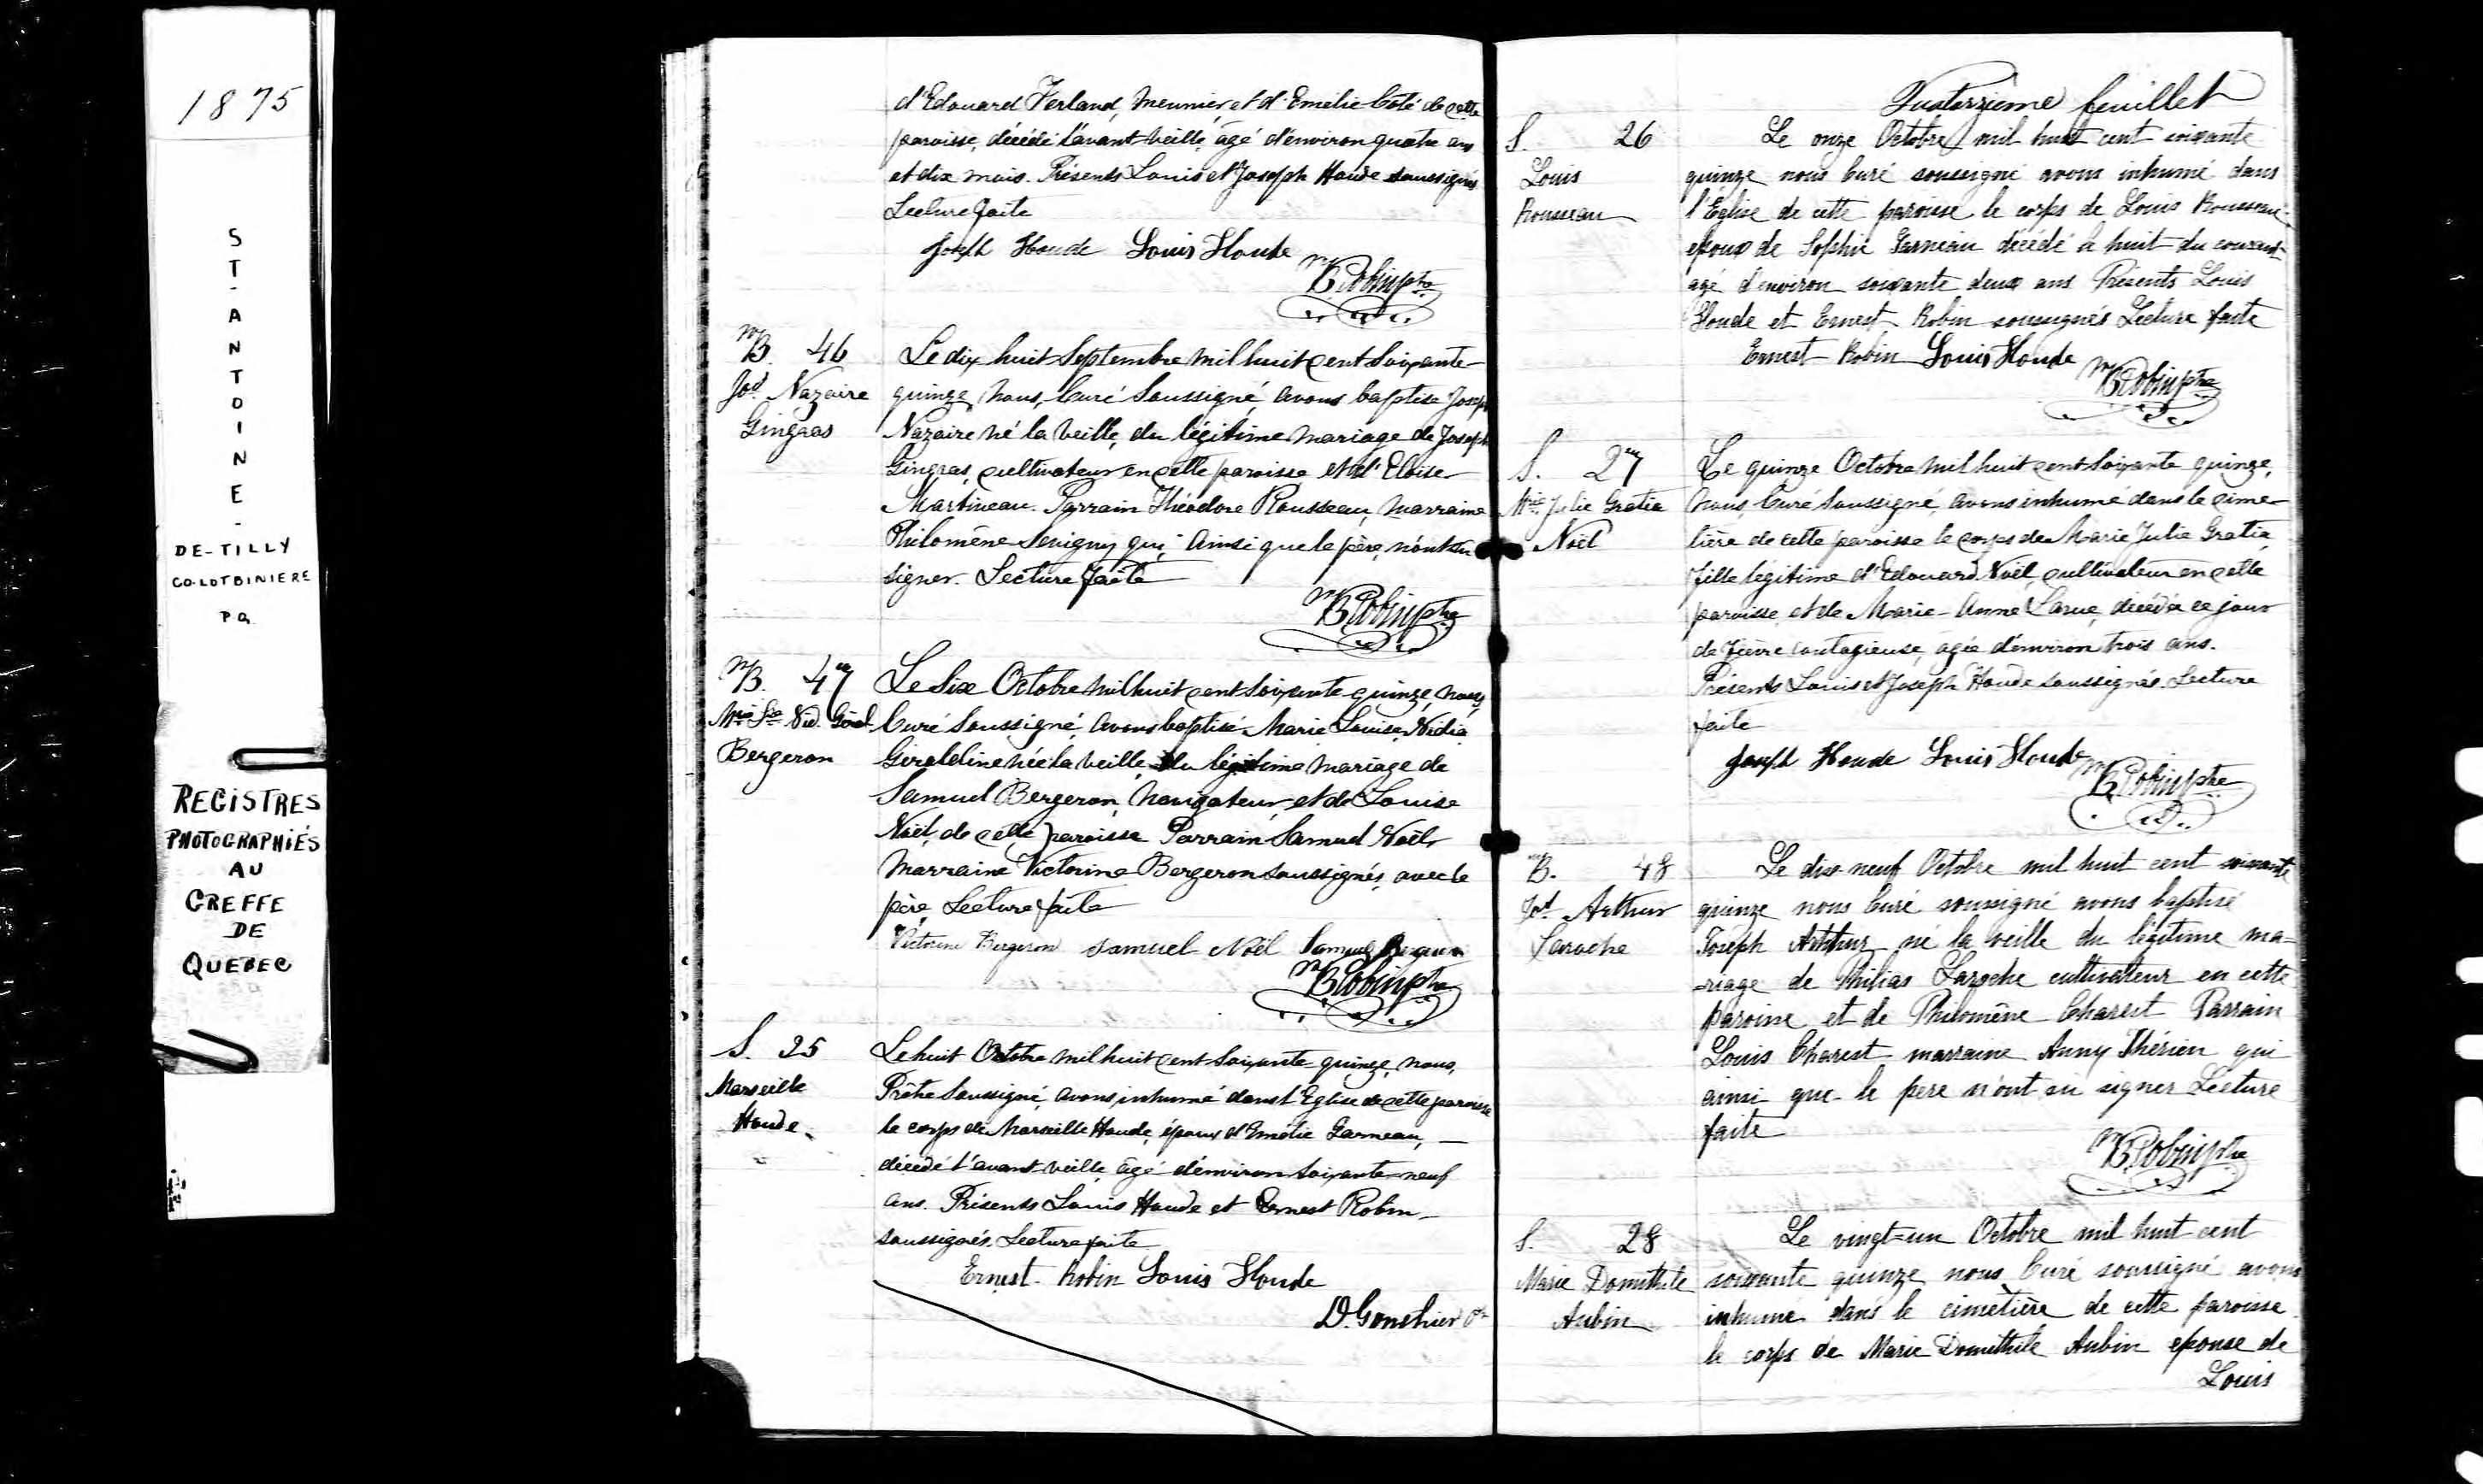 1875
ST-ANTOINE-
DE-TILLY
CO-LOTBINIERE
P Q.
REGISTRES
PHOTOGRAPHIÉS
AU
GREFFE
DE
QUEBEC
d'Edouard Ferland, meunier, et d'Emélie Coté de cette
paroisse, décédé l'avant veille, âgé d'environ quatre ans
et dix mois. Présents Louis et Joseph Houde soussignés
Lecture faite
Joseph Houde Louis Houde
B Robin ptre
B. 46
Jos. Nazaire
Gingras
Le dix huit Septembre mil huit cent soixante
quinze, nous, Curé Soussigné, avons baptisé Joseph
Nazaire né la veille, du légitime mariage de Joseph
Gingras, cultivateur en cette paroisse et d'Eloise
Martineau. Parrain Théodore Rousseau, marraine
Philomène Sevigny qui, ainsi que le père, n'ont su
signer. Lecture faite
B Robin ptre
B. 47
Mie Lse Nid. Gérald.
Bergeron
Le Six Octobre mil huit cent soixante-quinze, nous,
Curé Soussigné, avons baptisé Marie Louise Nidia
Giraldine née la veille, du légitime mariage de
Samuel Bergeron, navigateur, et de Louise
Noël, de cette paroisse Parrain Samuel Noël
marraine Victorine Bergeron soussignés, avec le
père, Lecture faite
Victorine Bergeron Samuel Noël Samuel Bergeron
B Robin ptre
S. 25
Marseille
Houde
Le huit Octobre mil huit cent soixante-quinze, nous,
Prêtre Soussigné, avons inhumé dans l'Eglise de cette paroisse
le corps de Marseille Houde, époux d'Emélie Garneau,
décédé l'avant veille, âgé d'environ soixante-neuf
ans. Présents Louis Houde et Ernest Robin
soussignés. Lecture faite
Ernest Robin Louis Houde
D. Gonthier Ptre
Quatorzième feuillet
S. 26
Louis
Rousseau
Le onze Octobre mil huit cent soixante
quinze nous Curé soussigné avons inhumé dans
l'Eglise de cette paroisse le corps de Louis Rousseau
epoux de Sophie Garneau décédé le huit du courant
agé d'environ soixante deux ans Présents Louis
Houde et Ernest Robin soussignés Lecture faite
Ernest Robin Louis Houde
B Robin ptre
S. 27
Mie Julie Gratia
Noël
Le quinze Octobre mil huit cent soixante quinze,
nous, Curé Soussigné, avons inhumé dans le cime-
tière de cette paroisse le corps de Marie Julie Gratia,
fille légitime d'Edouard Noël, cultivateur en cette
paroisse, et de Marie-Anne Larue, décédée ce jour
de fièvre contagieuse, agée d'environ trois ans.
Présents Louis et Joseph Houde soussignés. Lecture
faite
Joseph Houde Louis Houde
B Robin ptre
B. 48
Jos. Arthur
Laroche
Le dix neuf Octobre mil huit cent soixante
quinze nous Curé soussigné avons baptisé
Joseph Arthur né la veille du légitime ma=
=riage de Philias Laroche cultivateur en cette
paroisse et de Philomène Charest Parrain
Louis Charest marraine Anny Thérien qui
ainsi que le père n'ont su signer Lecture
faite
B Robin ptre
S. 28
Marie Domithile
Aubin
Le vingt=un Octobre mil huit cent
soixante quinze nous Curé soussigné avons
inhumé dans le cimetière de cette paroisse
le corps de Marie Domithile Aubin epouse de
Louis